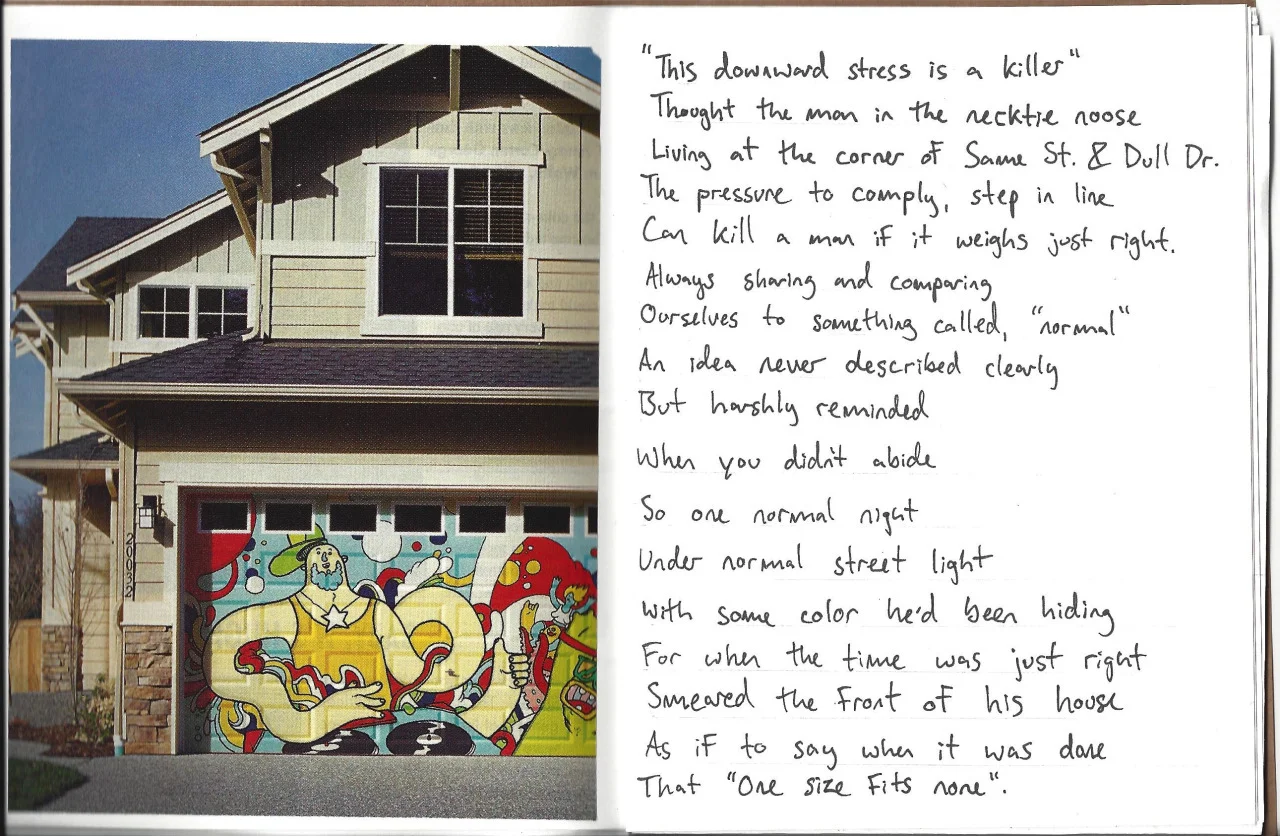 20032
"This downward stress is a killer"
Thought the man in the necktie noose
Living at the corner of Same St. & Dull Dr.
The pressure to comply, step in line
Can kill a man if it weighs just right.
Always sharing and comparing
Ourselves to something called, "normal"
An idea never described clearly
But harshly reminded
When you didn't abide
So one normal night
Under normal street light
With some color he'd been hiding
For when the time was just right
Smeared the front of his house
As if to say when it was done
That "One size fits none".